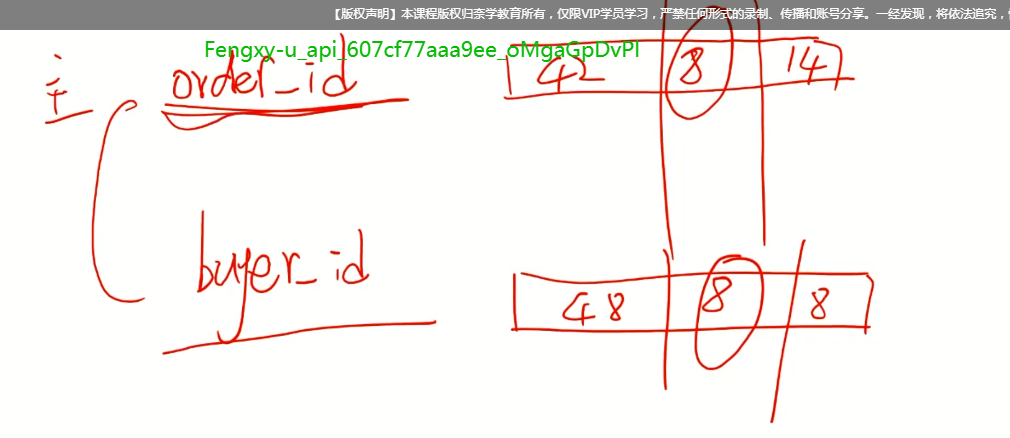 【版权声明】本课程版权归奈学教育所有，仅限VIP学员学习，严禁任何形式的录制、传播和账号分享。一经发现，将依法追究，
Fengxy-u_api_607cf77aaa9ee_oMgaGpDvPI
主 order_id 42 8 14
buyer_id 48 8 8